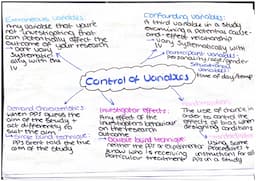 Extraneous Variables
Any variable that you're
not investigating that
can potentially affect the
outcome of your research
→ Don't vary
systematic
ally with the
IV
Confounding Variables
A third variable in a study
examining a potential cause-
and-effect relationship
→ Vary systematically with
IV
→ participant variables:
personality/age/gender
→ situational
variables:
time of day/temp
Control of Variables
Demand Characteristics
When PPs guess the
aim of the study +
act differently to
suit the aim
→ Single blind technique:
PPs aren't told the true
aim of the study
Investigator effects:
Any effect of the
investigators behaviour
on the research
outcome
→ Double blind technique:
neither the PP or experimenter
know who is receiving a
particular treatment
Randomisation:
The use of chance in
order to control the
effects of bias when
designing conditions
Using same
procedures +
instructions for all
PPs in a study